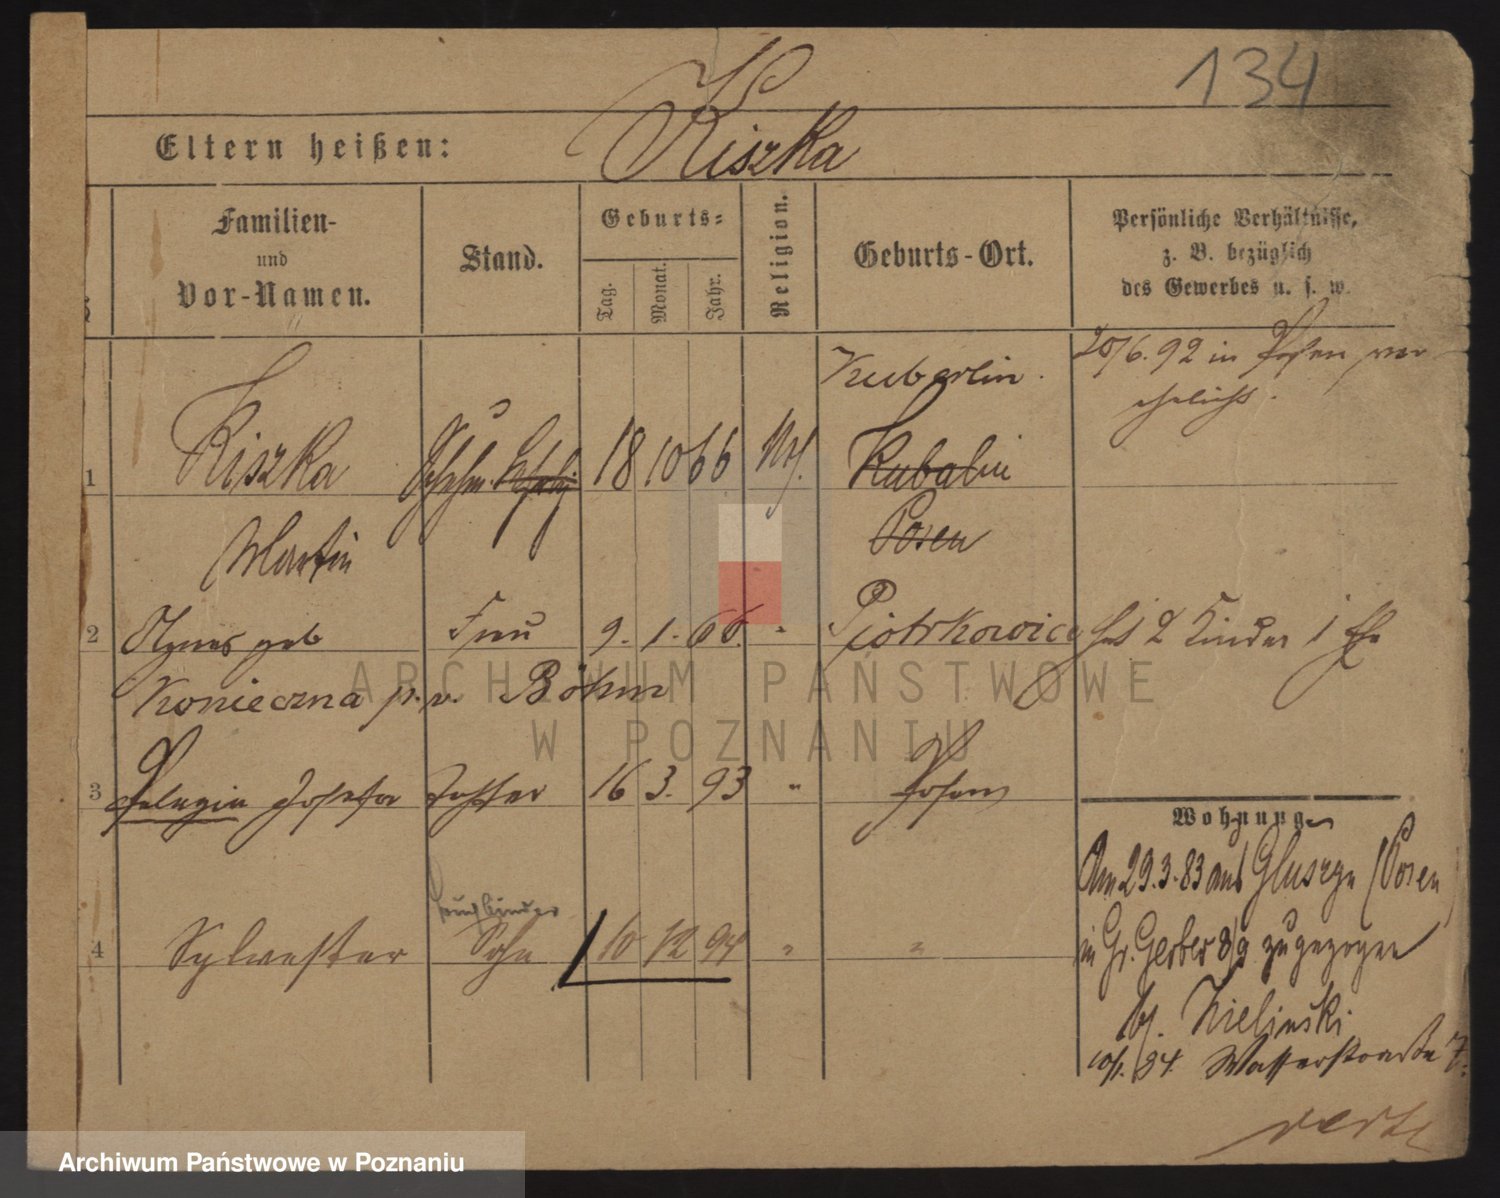 134
Eltern heißen: Kiszka
Familien-
und
Vor-Namen.
Stand.
Geburts-
Tag.
Monat.
Jahr.
Religion.
Geburts-Ort.
Persönliche Verhältnisse,
z. B. bezüglich
des Gewerbes u. s. w.
Kuberlin. 20/6.92 in Posen ver
ehelicht.
1 Kiszka 18 10 66 Kubalin
Martin Posen
2 Agnes geb Frau 9. 1. 66. " Piotrkowice hat 2 Kinder
Konieczna p. v. Böhm
3 Pelagia Josefa Tochter 16 3. 93 " Posen
Wohnung
Am 29.3.83 aus Gluszyn (Posen
Buchbinder
4 Sylvester Sohn 10 12 94 " "
in Gr. Gerber 8/9 zugezogen
bj. Zielinski
10/1. 84. Wasserstraße 7.
verte
ARCHIWUM PAŃSTWOWE
W POZNANIU
Archiwum Państwowe w Poznaniu